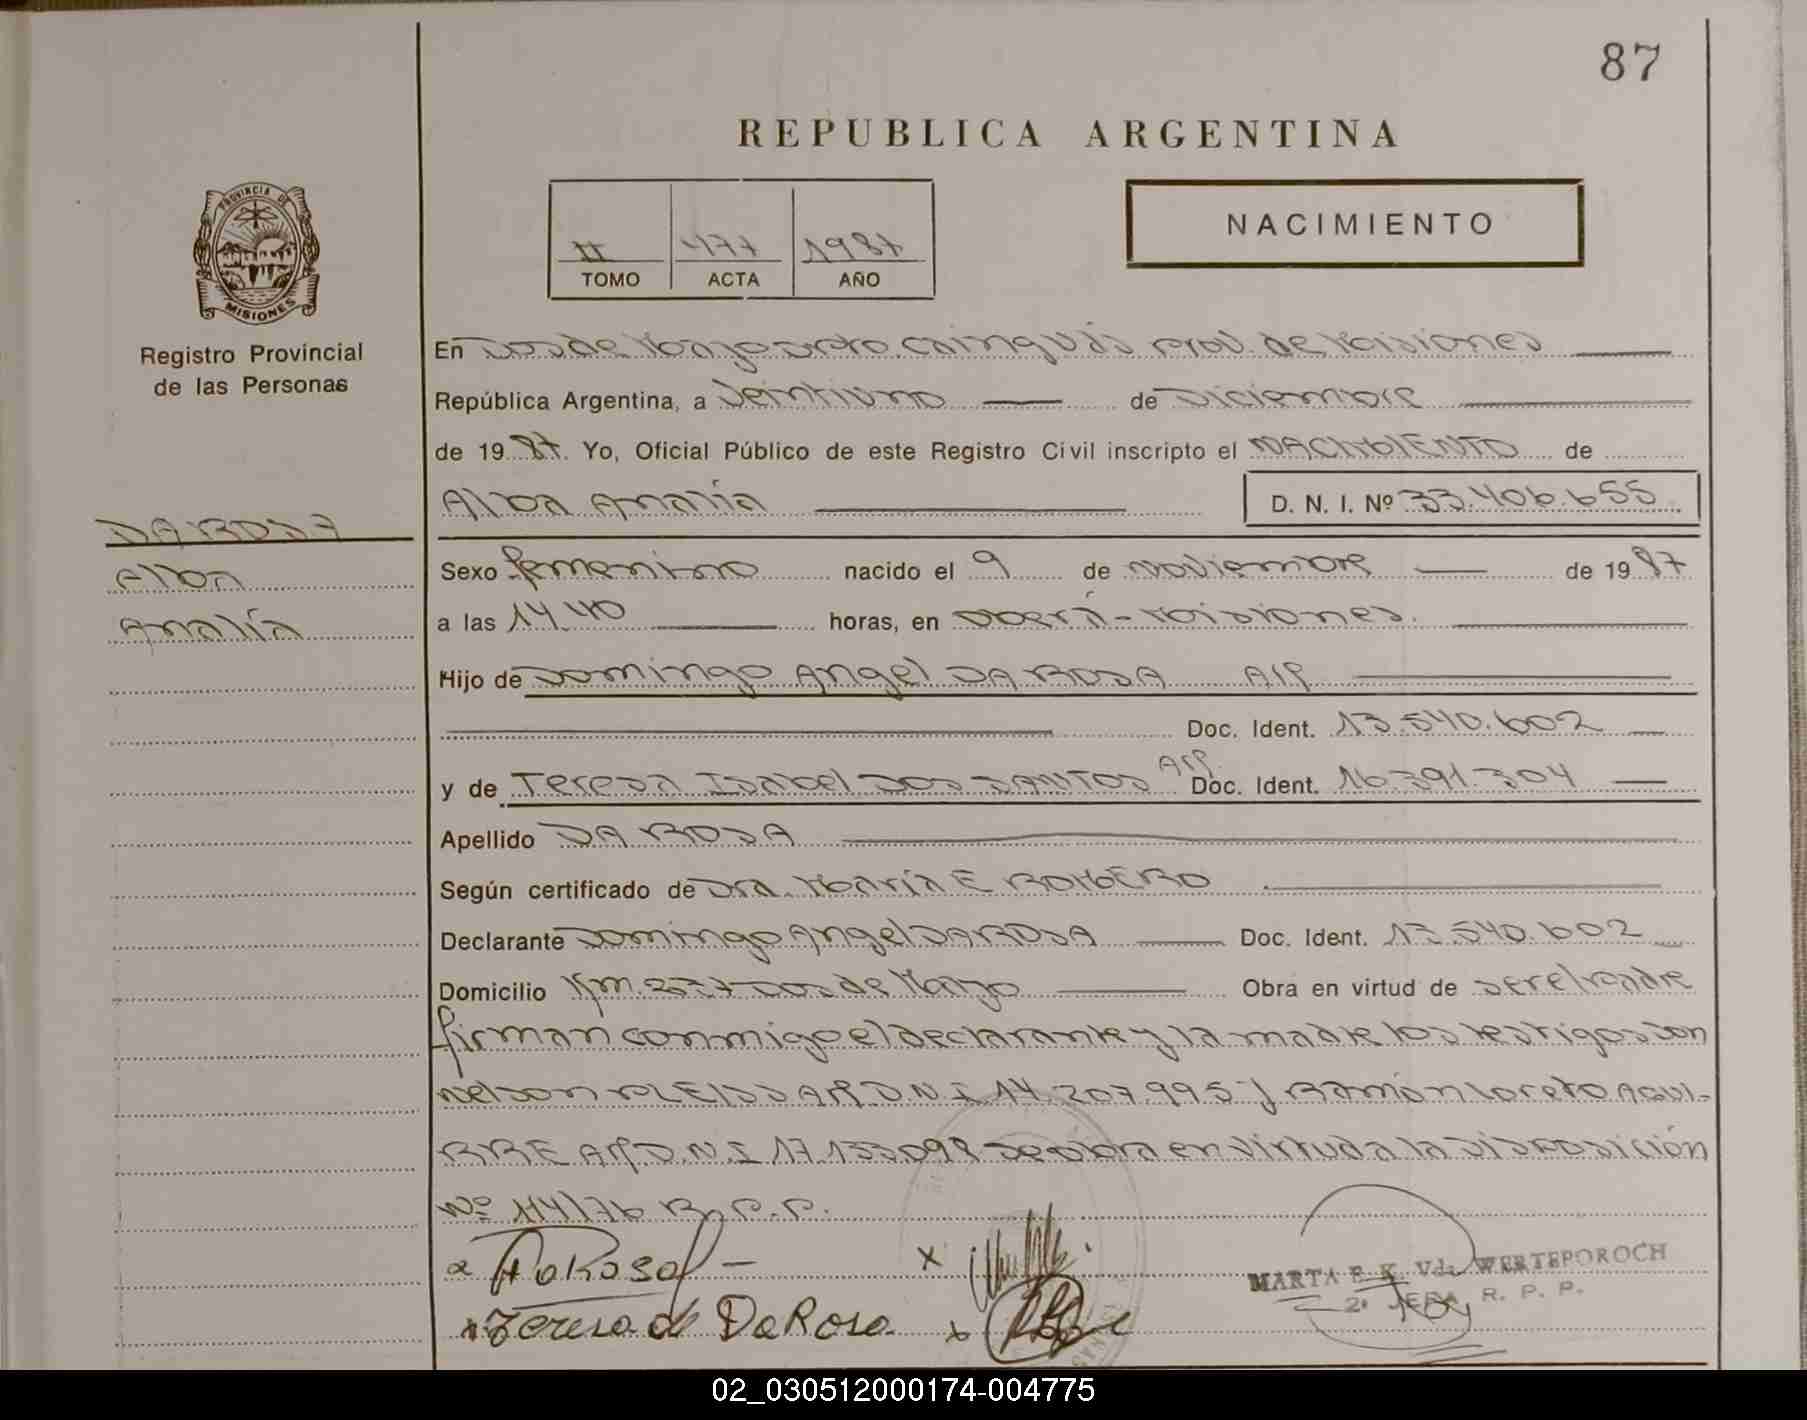 87
REPUBLICA ARGENTINA
NACIMIENTO
II 477 1987
TOMO ACTA AÑO
PROVINCIA DE
MISIONES
Registro Provincial
de las Personas
En Dos de Mayo Dpto. Cainguás Prov. de Misiones
República Argentina, a Veintiuno de Diciembre
de 1987. Yo, Oficial Público de este Registro Civil inscripto el NACIMIENTO de
Alba Analía D. N. I. Nº 33.406.655
DA ROSA
Alba
Analía
Sexo femenino nacido el 9 de noviembre de 1987
a las 14.40 horas, en Oberá - Misiones.
Hijo de Domingo Angel DA ROSA Arg
Doc. Ident. 13.540.602
y de Teresa Isabel DOS SANTOS Arg. Doc. Ident. 16.391.304
Apellido DA ROSA
Según certificado de Dra. María E ROMERO
Declarante Domingo Angel DA ROSA Doc. Ident. 13.540.602
Domicilio Km. 237 Dos de Mayo Obra en virtud de ser el padre
firman conmigo el declarante y la madre los testigos son
Nelson Arg D.N.I 14.207.995 y Ramón Loreto AGUI-
RRE Arg D.N.I 17.133.098 Se obra en virtud a la Disposición
Nº 114/76 R.P.P.
DaRosa
x
Teresa d DaRosa
MARTA E. K. Vda WERTEPOROCH
2ª JEFA R. P. P.
02_030512000174-004775